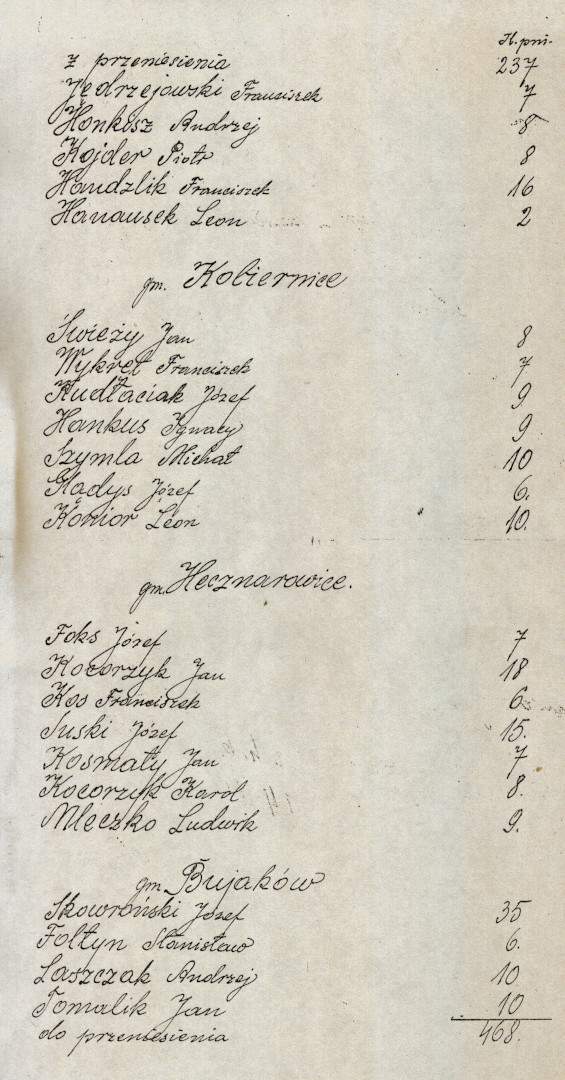 Il. pni.
z przeniesienia 237
Jędrzejowski Franciszek 7
Honkisz Andrzej 8.
Kojder Piotr 8
Handzlik Franciszek 16
Hanausek Leon 2
gm. Kobiernice
Świeży Jan 8
Wykręt Franciszek 7
Kudłaciak Józef 9
Hankus Ignacy 9
Szymla Michał 10
Gładys Józef 6.
Konior Leon 10.
gm. Hecznarowice.
Foks Józef 7
Kocorzyk Jan 18
Kos Franciszek 6
Suski Józef 15.
Kosmaty Jan 7
Kocorzyk Karol 8.
Mleczko Ludwik 9.
gm Bujaków
Skowroński Józef 35
Fołtyn Stanisław 6.
Laszczak Andrzej 10
Tomalik Jan 10
do przeniesienia 468.